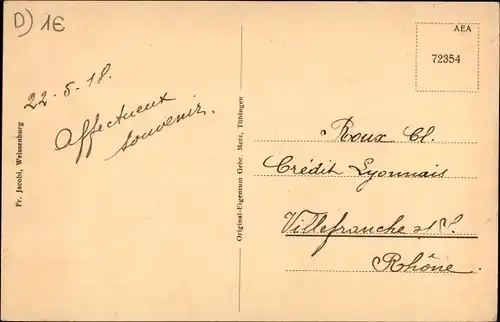 D) 1€
AEA
72354
22-5-18.
Affectueux
souvenir.
Fr. Jacobi, Weissenburg
Original-Eigentum Gebr. Metz, Tübingen
Roux Cl.
Crédit Lyonnais
Villefranche s/S.
Rhône.